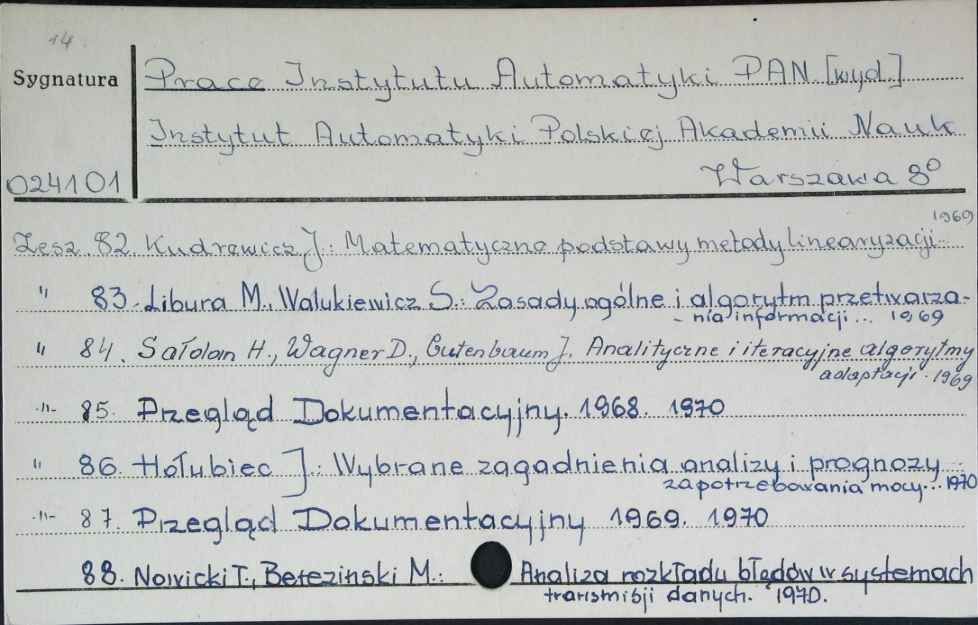 14
Sygnatura
Prace Instytutu Automatyki PAN [wyd.]
Instytut Automatyki Polskiej Akademii Nauk
024101
Warszawa 8°
Zesz. 82. Kudrewicz J.: Matematyczne podstawy metody linearyzacji... 1969
" 83. Libura M., Walukiewicz S.: Zasady ogólne i algorytm przetwarza-
- nia informacji... 1969
" 84. Sałolan H., Wagner D., Gutenbaum J. Analityczne i iteracyjne algorytmy
adaptacji. 1969
-"- 85. Przegląd Dokumentacyjny. 1968. 1970
" 86. Hołubiec J.: Wybrane zagadnienia analizy i prognozy
zapotrzebowania mocy... 1970
-"- 87. Przegląd Dokumentacyjny 1969. 1970
88. Nowicki T., Berezinski M.: Analiza rozkładu błędów w systemach
transmisji danych. 1970.